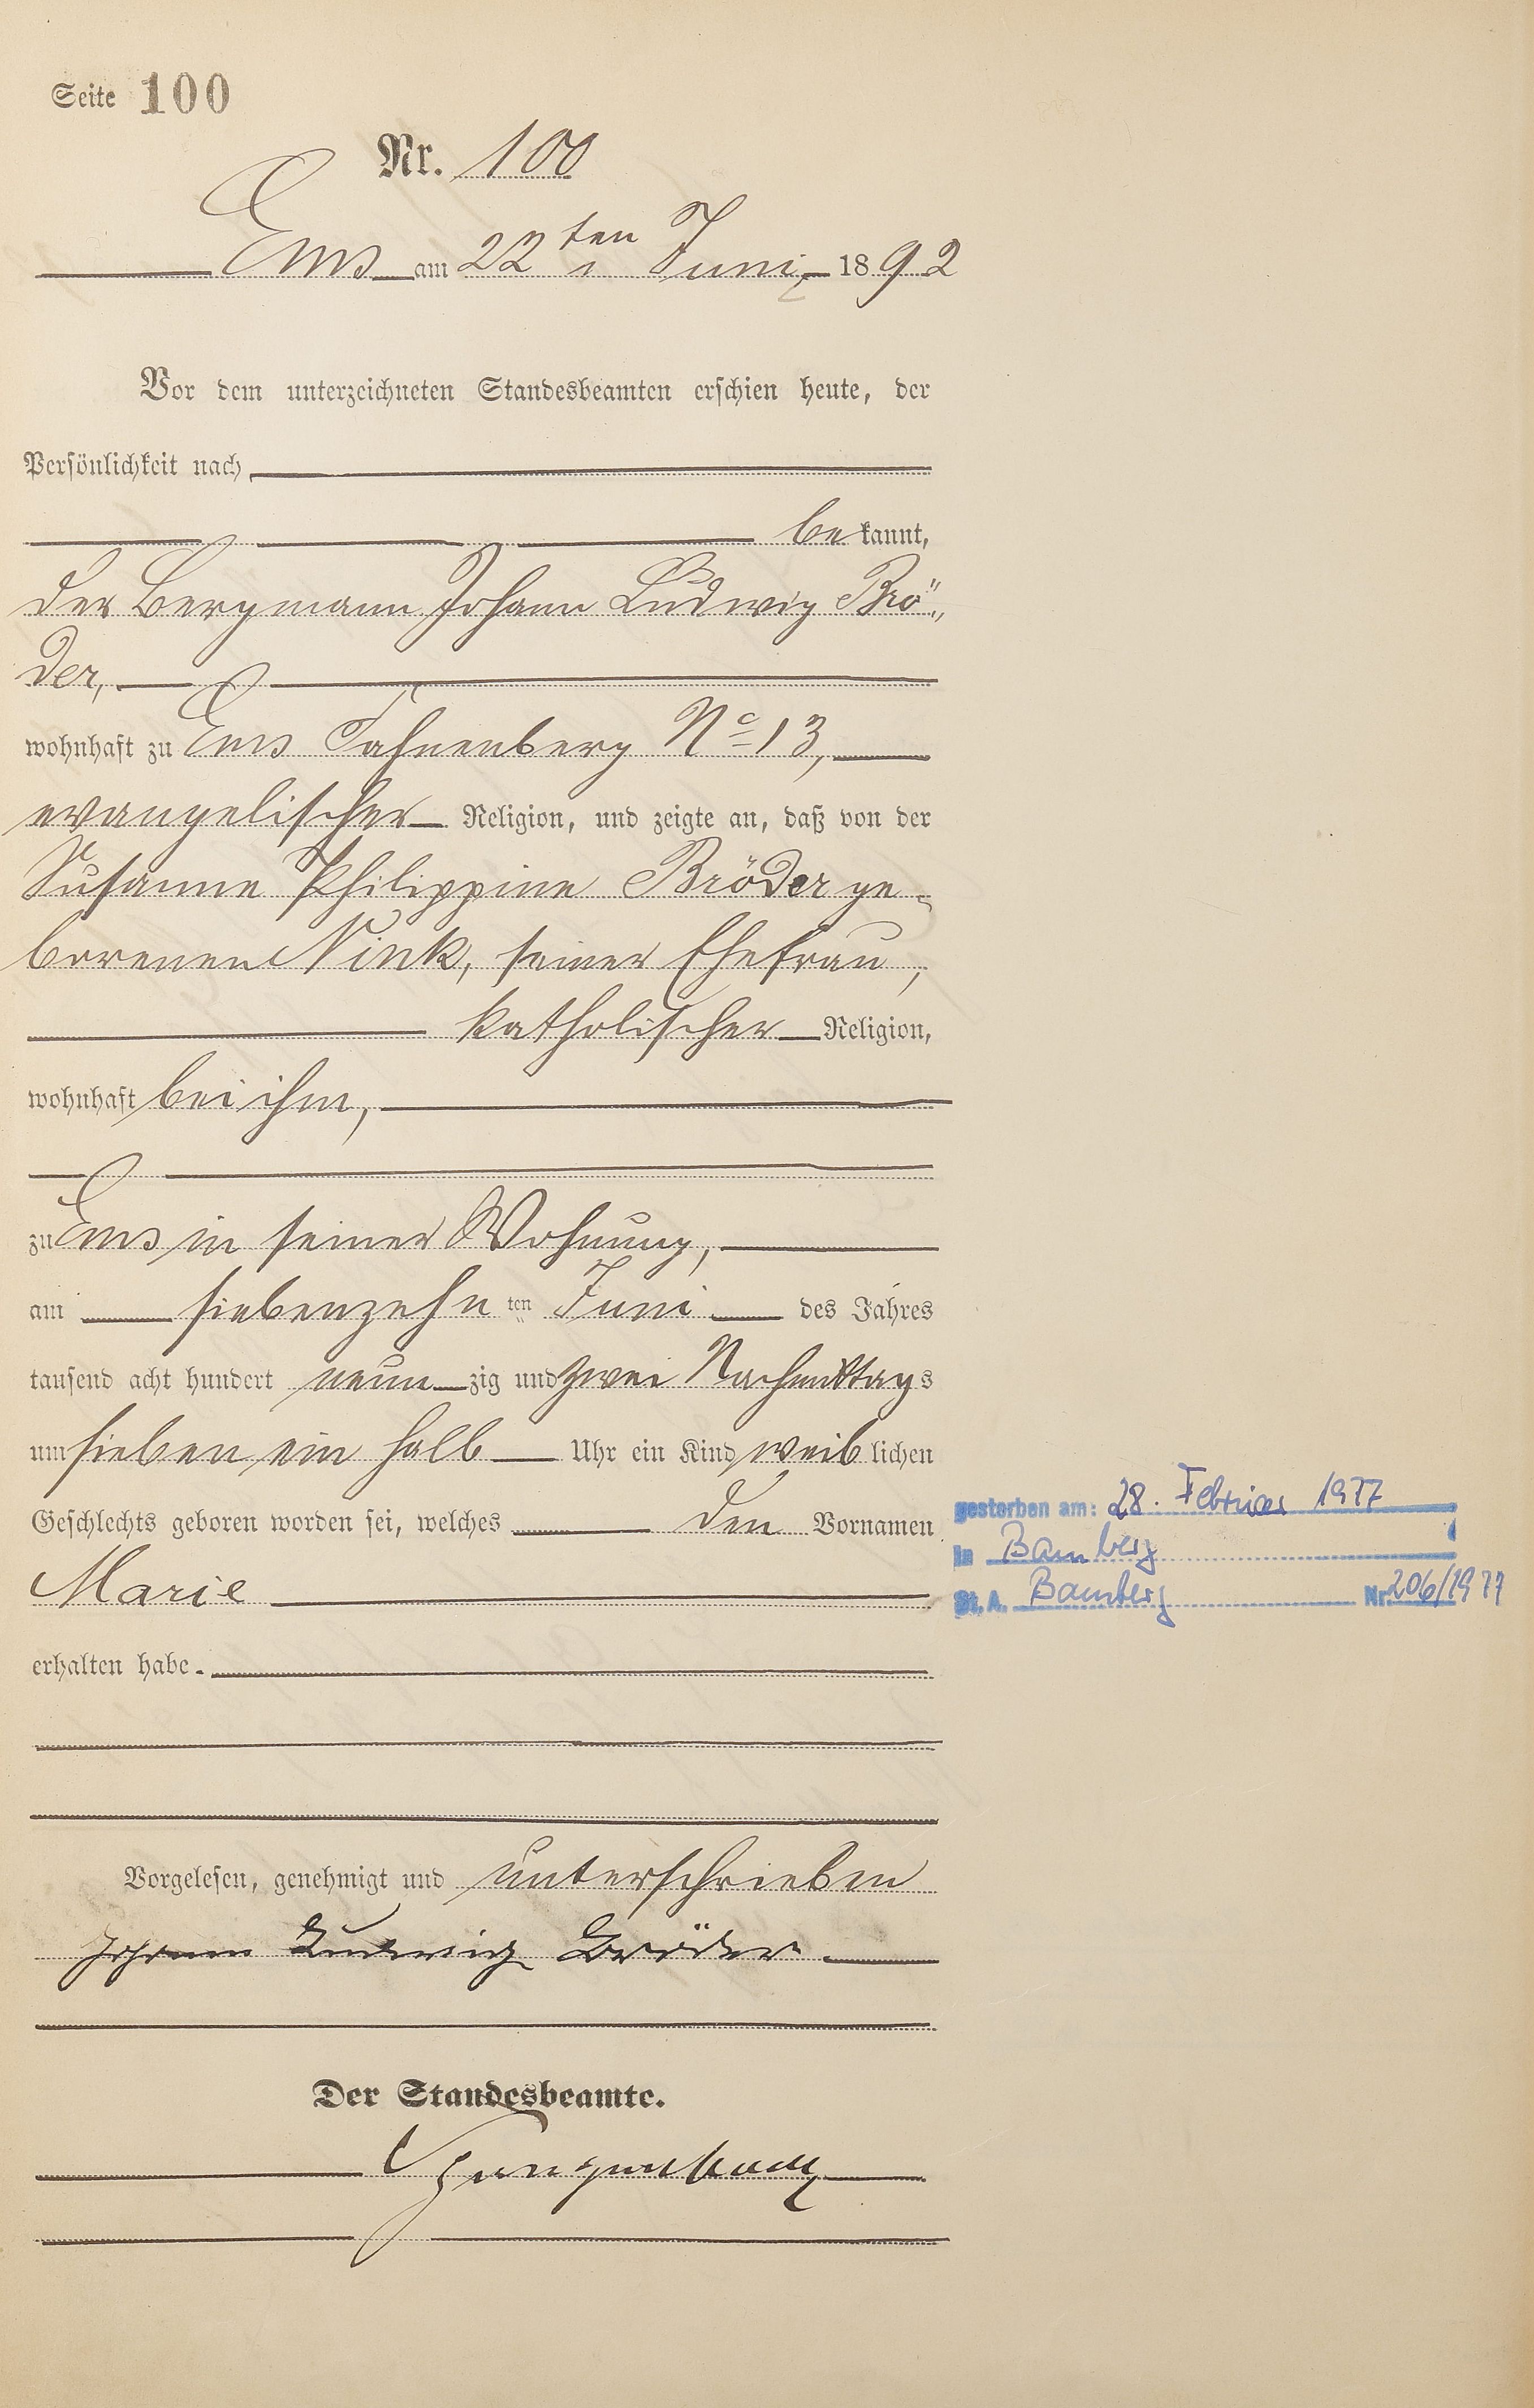 Seite 100
Nr. 100
Ems am 22ten Juni 1892
Vor dem unterzeichneten Standesbeamten erschien heute, der
Persönlichkeit nach
bekannt,
der Bergmann Johann Ludwig Brö„
der,
wohnhaft zu Ems Fahnenberg No 13,
evangelischer Religion, und zeigte an, daß von der
Susanna Philippine Bröder ge-
borenen Nink, seiner Ehefrau,
katholischer Religion,
wohnhaft bei ihm,
zu Ems in seiner Wohnung,
am siebenzehnten Juni des Jahres
tausend acht hundert neunzig und zwei Nachmittags
um sieben ein halb Uhr ein Kind weiblichen
Geschlechts geboren worden sei, welches den Vornamen
Marie
erhalten habe.
Vorgelesen, genehmigt und unterschrieben
Johann Ludwig Bröder
Der Standesbeamte.
gestorben am: 28. Februar 1977
in Bamberg
St. A. Bamberg Nr. 206/1977